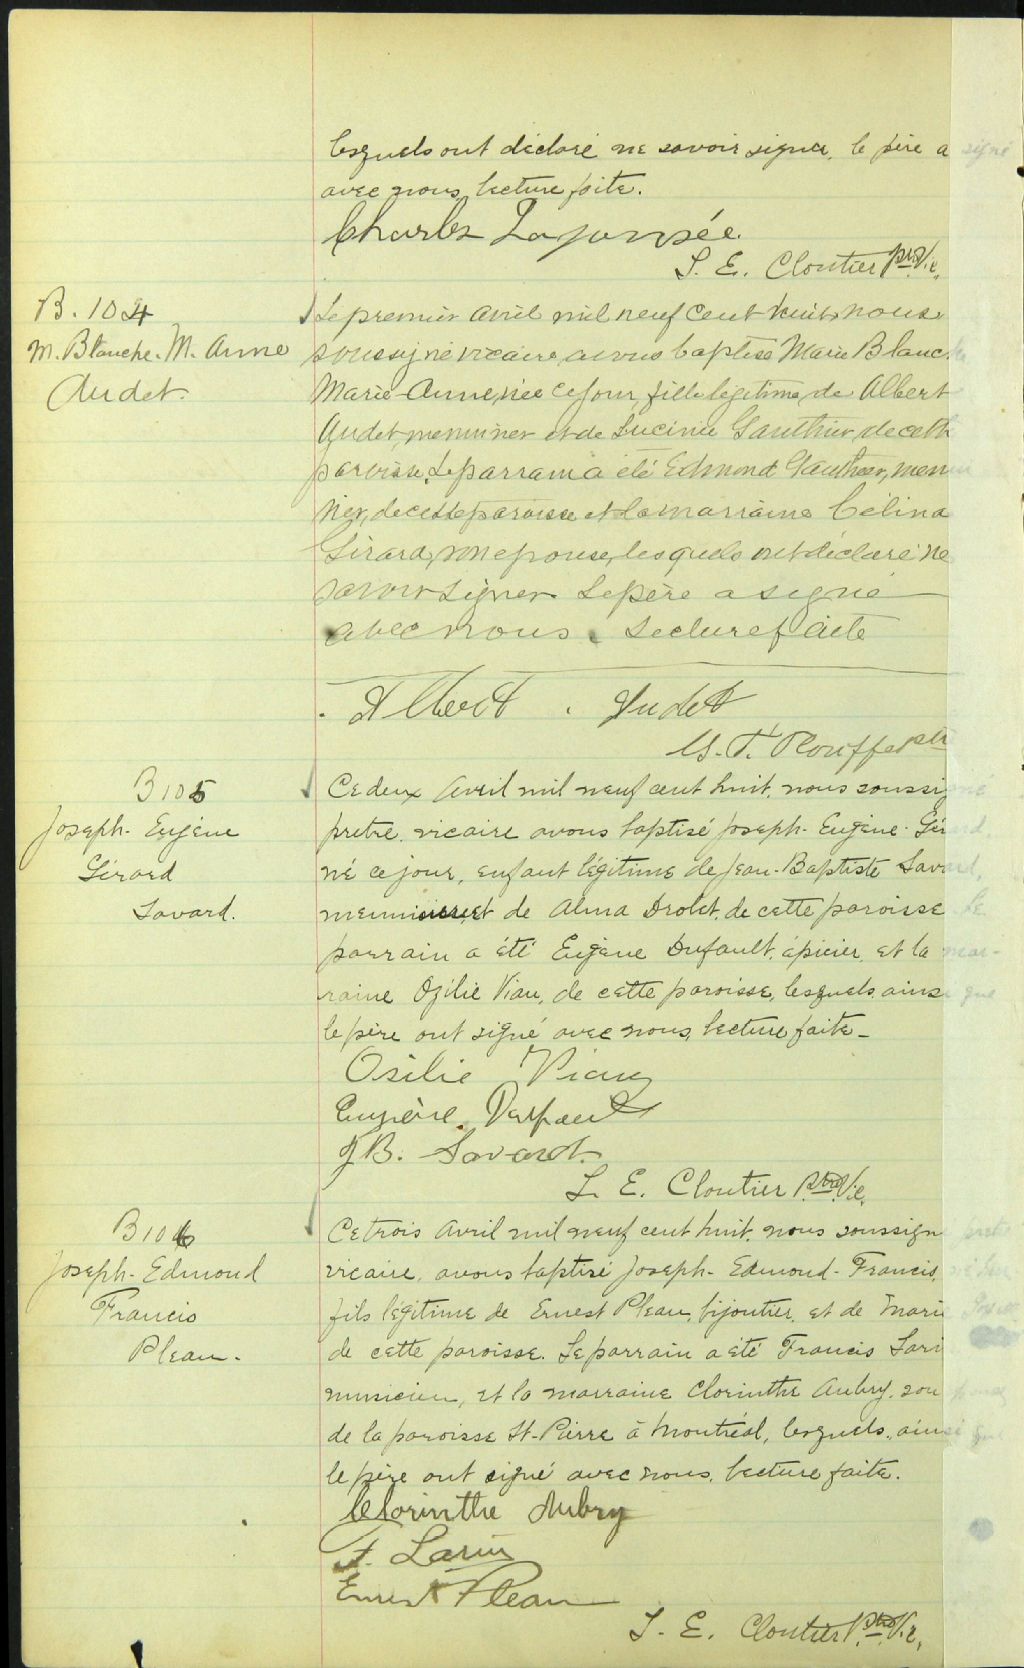 lesquels ont déclaré ne savoir signer, le père a signé
avec nous, lecture faite.
Charles Lajeunesse
L. E. Cloutier Ptre. Vic.
B. 104
M. Blanche. M. Anne
Audet.
Le premier avril mil neuf cent huit, nous
soussigné vicaire avons baptisé Marie Blanche
Marie-Anne, née ce jour, fille légitime de Albert
Audet menuisier et de Lucinie Gauthier, de cette
paroisse. Le parrain a été Edmond Gauthier, menui
sier, de cette paroisse et la marraine Célina
Girard, son épouse, lesquels ont déclaré ne
savoir signer. Le père a signé
avec nous. Lecture faite
Albert Audet
Ptr
B 105
Joseph-Eugène
Gérard
Savard.
Ce deux avril mil neuf cent huit, nous soussigné
pretre vicaire avons baptisé Joseph-Eugène-Gérard,
né ce jour, enfant légitime de Jean-Baptiste Savard,
menuisier, et de Alma Drolet, de cette paroisse. Le
parrain a été Eugène Dufault, épicier, et la mar-
raine Ozilie Viau, de cette paroisse, lesquels, ainsi que
le père ont signé avec nous, lecture faite_
Osilie Viau
Eugène Dufault
J B. Savard.
L. E. Cloutier Ptre. Vic.
B 106
Joseph-Edmond
Francis
Pleau.
Ce trois avril mil neuf cent huit, nous soussigné prêtre
vicaire, avons baptisé Joseph-Edmond-Francis,
fils légitime de Ernest Pleau, bijoutier, et de Marie
de cette paroisse. Le parrain a été Francis Lari
musicien, et la marraine Clorinthe Aubry, son
de la paroisse St-Pierre à Montréal, lesquels, ainsi que
le père ont signé avec nous, lecture faite.
Clorinthe Aubry
F. Larin
Ernest Pleau
L. E. Cloutier Ptre. Vic.